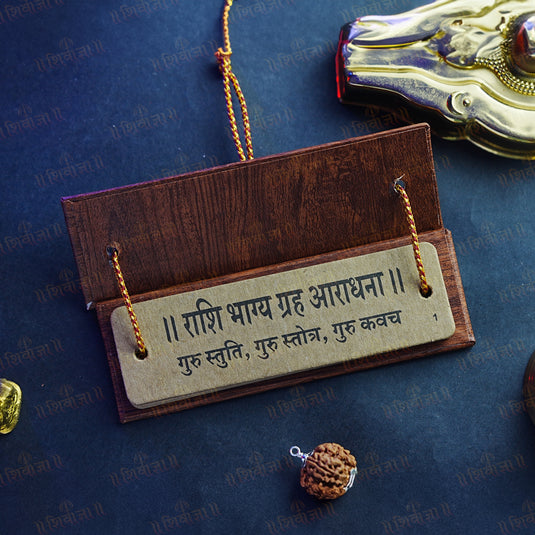 ॥ राशि भाग्य ग्रह आराधना ॥
गुरु स्तुति, गुरु स्तोत्र, गुरु कवच
1
॥ शिवोजा ॥